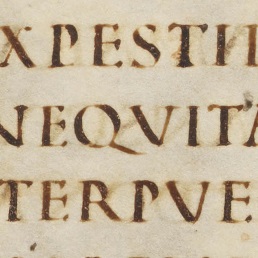 XPESTI
NEQUITA
TERPUE